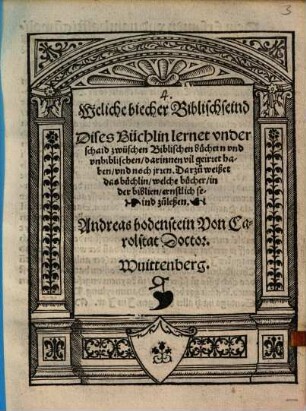 3
4.
Weliche biecher Biblisch seind
Dises Büchlin lernet vnder
schaid zwüschen Biblischen büchern vnd
vnbiblischen / darinnen vil geirret ha-
ben / vnd noch jrren. Darzů weißet
das bůchlin / welche bücher / in
der biblien / ernstlich se-
ind zůleßen.
Andreas bodenstein Von Ca-
rolstat Doctor.
Wuittenberg.